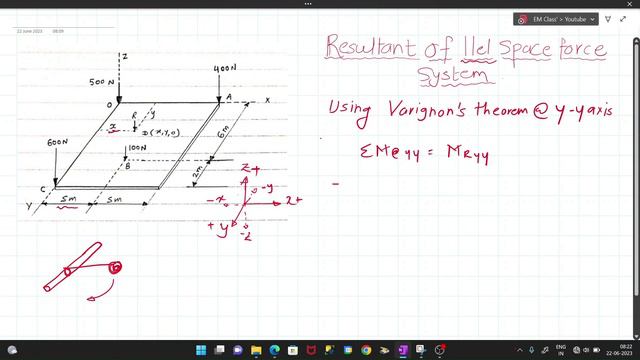 EM Class' > Youtube
22 June 2023 08:09
Resultant of llel Space force
System
Using Varignon's theorem @ y-y axis
ΣM@yy = MRyy
-
Z
400N
500N
O
A
X
R
y
x
D(x,y,0)
6m
600N
100N
B
2m
C
Y
5m
5m
Z+
-y
-x
x+
+y
-z
ENG
IN
08:22
22-06-2023